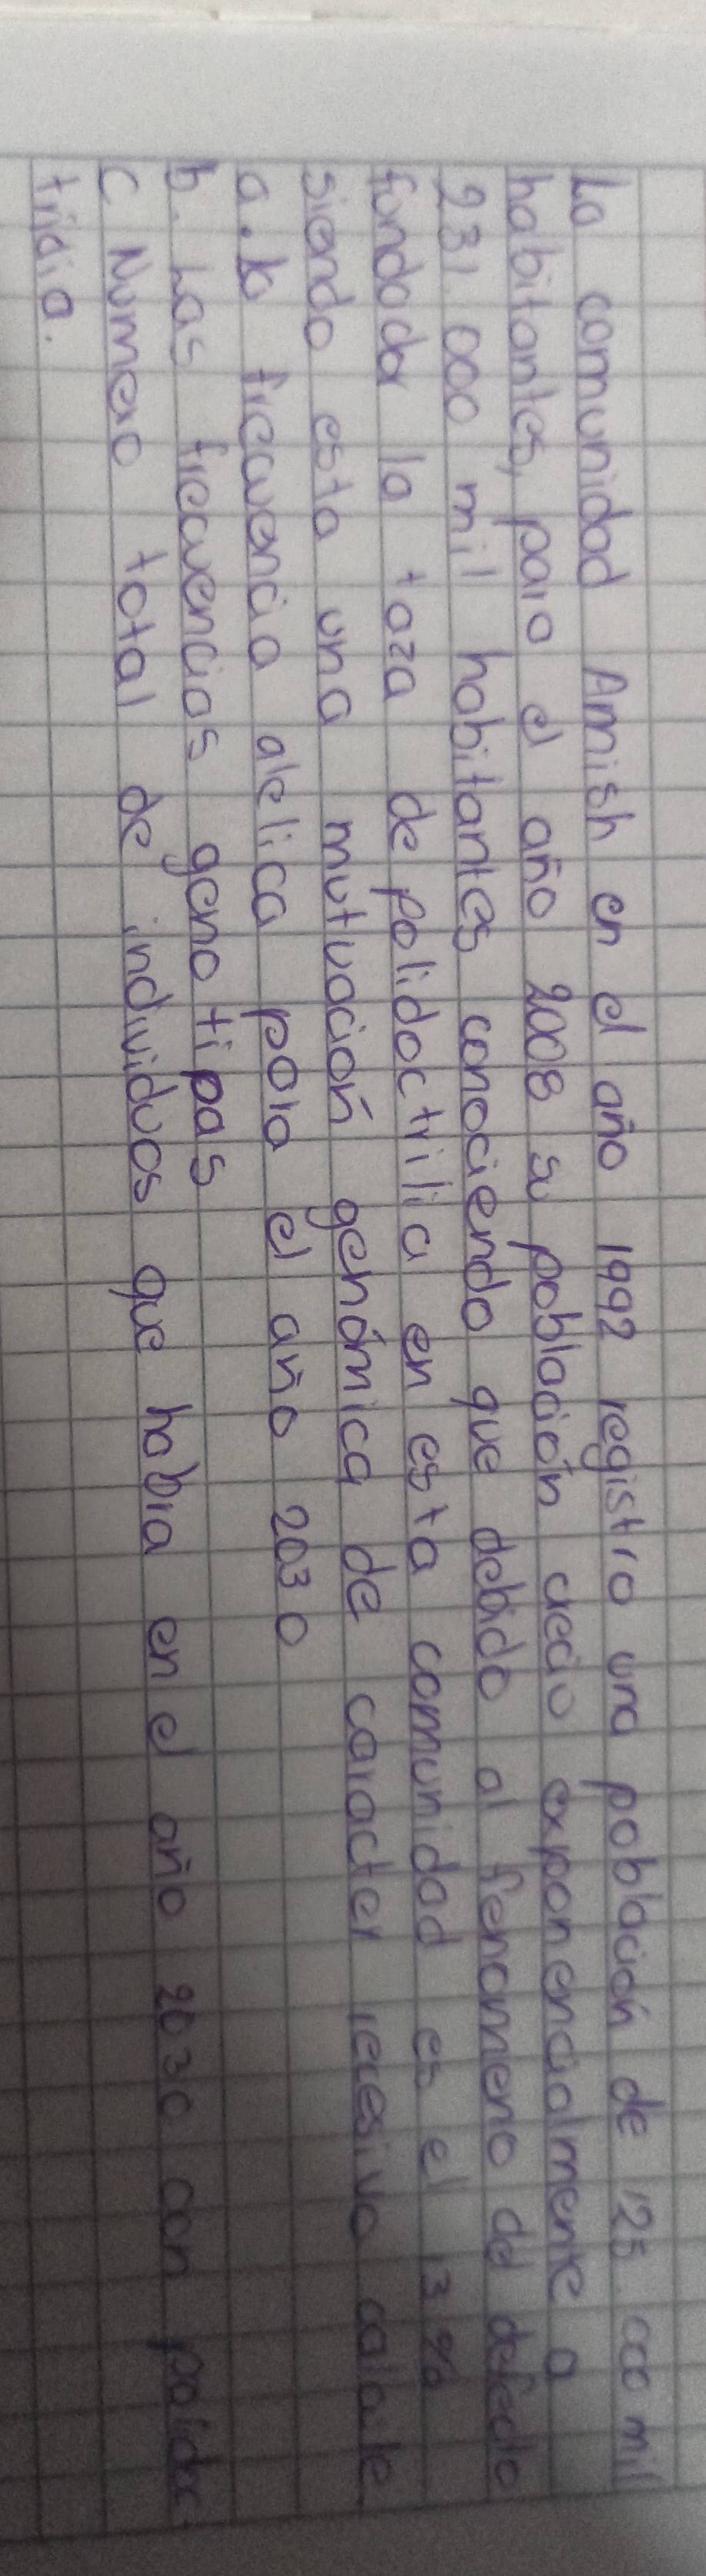 La comunidad Amish en el año 1992 registro una población de 125.000 mil
habitantes, para el año 2008 su población crecio exponencialmente a
231.000 mil habitantes conociendo que debido al fenomeno del defecto
fundador la taza de polidoctrilia en esta comunidad es el 13%
siendo esta una mutuación genómica de caracter recesivo calcule
a. la frecuencia alelica para el año 2030
b. Las frecuencias genotipas
c Numero total de individuos que habra en el año 2030 con polidac
tridia.